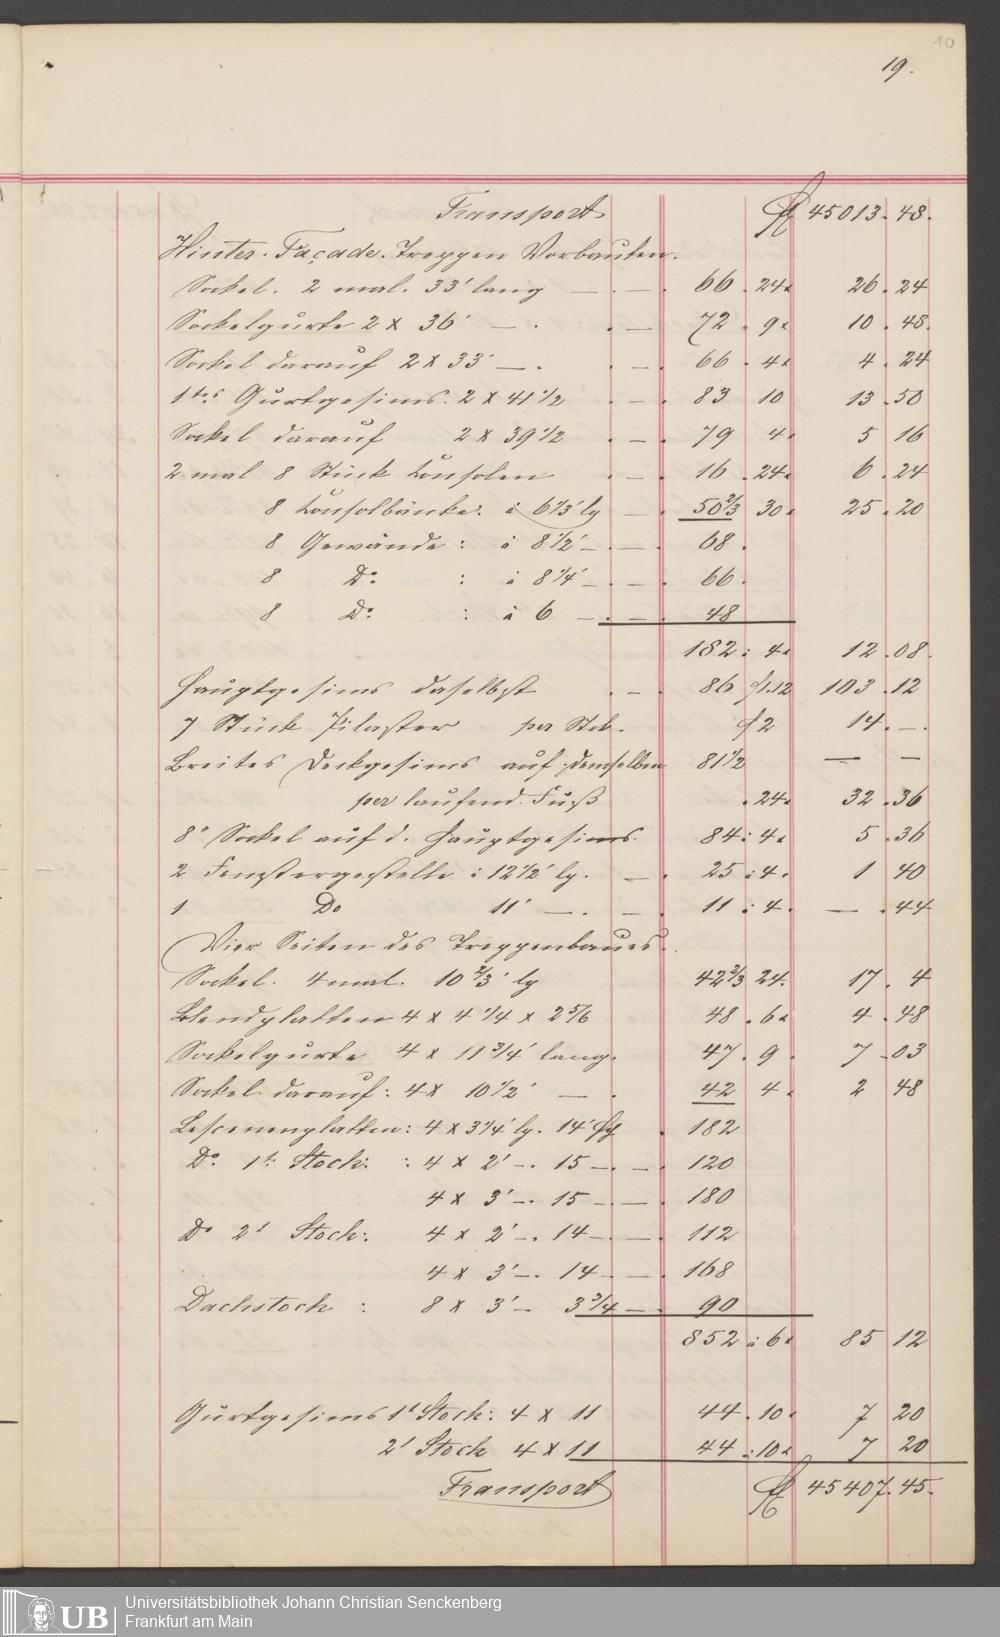 10
19.
Transport fl 45013. 48.
Hinter. Façade. Treppen Vorbauten.
Sockel. 2 mal. 33' lang — . — . 66 . 24x 26 . 24
Sockelgurte 2 x 36' — . . — 72 . 9x 10 . 48.
Sockel darauf 2 x 33' — . . — . 66 . 4x 4 . 24
1tes Gurtgesims. 2 x 41 1/2 . — . 83 10 13 . 50
Sockel darauf 2 x 39 1/2 . — . 79 4x 5 16
2 mal 8 Stück Consolen . — . 16 . 24x 6 . 24
8 Consolbänke. à 6 1/3' lg — . 50 2/3 30x 25 . 20
8 Gewände : à 8 1/2' — . — . 68 .
8 Do : à 8 1/4' — . — . 66 .
8 Do : à 6 — . — . 48
182 : 4x 12 . 08.
Hauptgesims daselbst . — . 86 f1.12 103 . 12
7 Stück Pilaster per Stck. f 2 14 . — .
Breites Deckgesims auf demselben 81 1/2 — —
per laufend. Fuß . 24x 32 . 36
8" Sockel auf d. Hauptgesims. 84 : 4x 5 . 36
2 Fenstergestelle : 12 1/2' lg. — . 25 : 4. 1 40
1 Do 11' — . — . 11 : 4. — . 44
Vier Seiten des Treppenbaues.
Sockel. 4 mal. 10 2/3' lg 42 2/3 24. 17 . 4
Blendplatten 4 x 4 1/4 x 2 5/6 48 . 6x 4 . 48
Sockelgurte 4 x 11 3/4' lang. 47 . 9 . 7 . 03
Sockel darauf : 4 x 10 1/2' — . 42 4 . 2 48
Lescenenplatten : 4 x 3 1/4' lg. 14' . 182
Do. 1t. Stock. : 4 x 2' — . 15 — . — . 120
4 x 3' — . 15 — . — . 180
Do 2t Stock : 4 x 2' — . 14 — . — . 112
4 x 3' — . 14 — . — . 168
Dachstock : 8 x 3' — 3 3/4 — . 90
852 à 6x 85 12
Gurtgesims 1t Stock : 4 x 11 44 . 10x 7 20
2t Stock 4 x 11 44 : 10x 7 20
Transport fl 45407. 45.
UB
Universitätsbibliothek Johann Christian Senckenberg
Frankfurt am Main